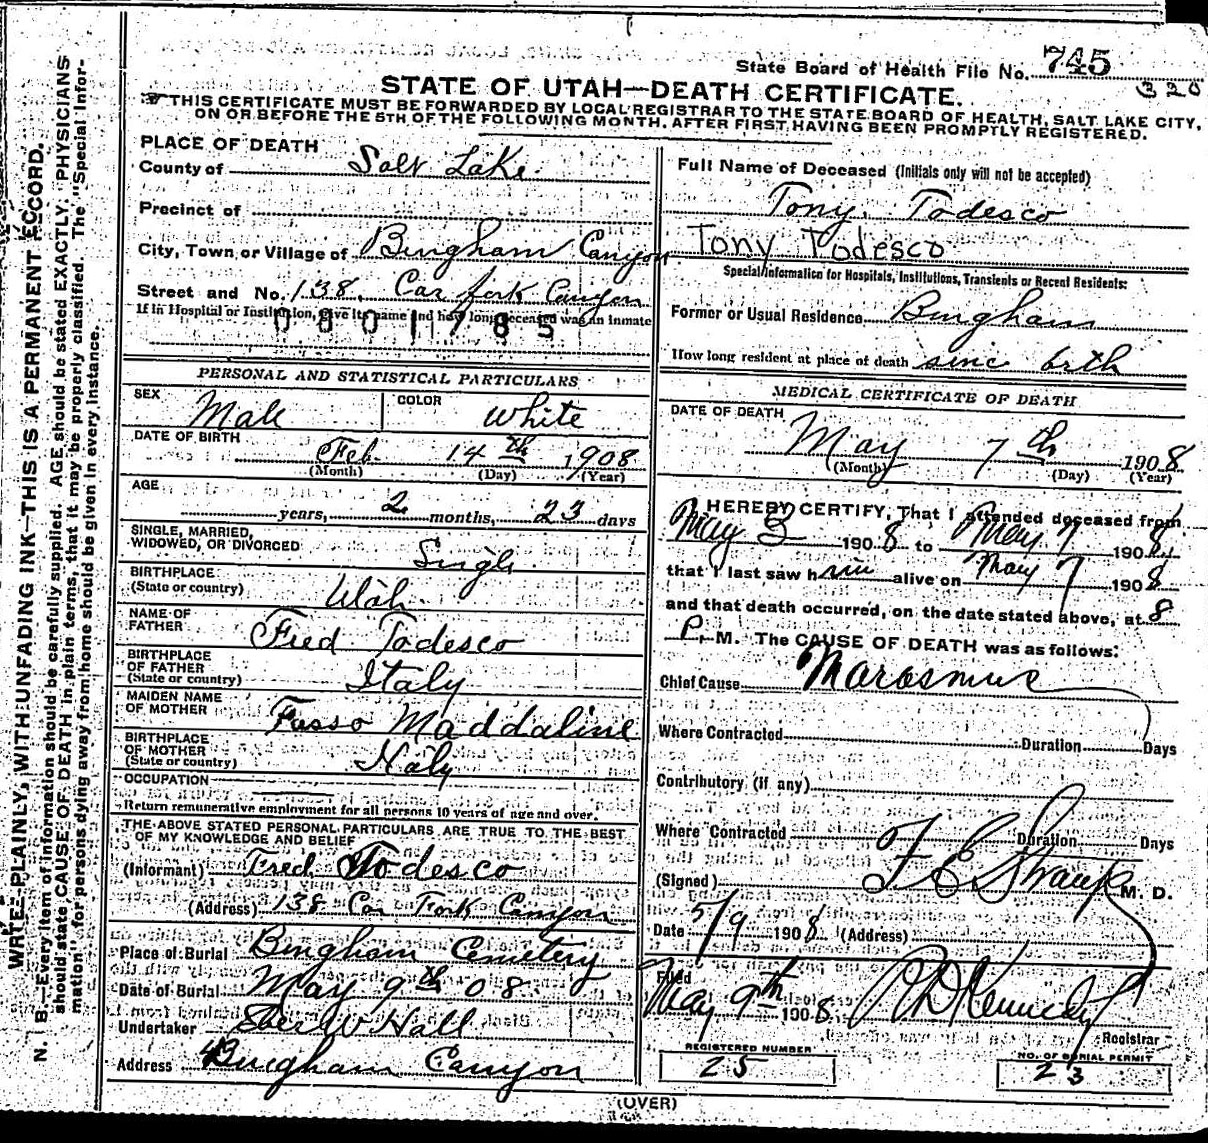 State Board of Health File No. 745
320
STATE OF UTAH—DEATH CERTIFICATE.
THIS CERTIFICATE MUST BE FORWARDED BY LOCAL REGISTRAR TO THE STATE BOARD OF HEALTH, SALT LAKE CITY,
ON OR BEFORE THE 5TH OF THE FOLLOWING MONTH, AFTER FIRST HAVING BEEN PROMPTLY REGISTERED.
WRITE PLAINLY, WITH UNFADING INK—THIS IS A PERMANENT RECORD.
N. B.—Every item of information should be carefully supplied. AGE should be stated EXACTLY. PHYSICIANS
should state CAUSE OF DEATH in plain terms, that it may be properly classified. The "Special Infor-
mation" for persons dying away from home should be given in every instance.
PLACE OF DEATH
County of Salt Lake
Precinct of
City, Town or Village of Bingham Canyon
Street and No. 138 Car fork Canyon
If in Hospital or Institution, give its name and how long deceased was an inmate
0801785
PERSONAL AND STATISTICAL PARTICULARS
SEX Male
COLOR White
DATE OF BIRTH Feb 14th 1908
(Month) (Day) (Year)
AGE
years, 2 months, 23 days
SINGLE, MARRIED,
WIDOWED, OR DIVORCED Singl
BIRTHPLACE
(State or country) Utah
NAME OF
FATHER Fred Todesco
BIRTHPLACE
OF FATHER
(State or country) Italy
MAIDEN NAME
OF MOTHER Fasso Maddaline
BIRTHPLACE
OF MOTHER
(State or country) Italy
OCCUPATION
Return remunerative employment for all persons 10 years of age and over.
THE ABOVE STATED PERSONAL PARTICULARS ARE TRUE TO THE BEST
OF MY KNOWLEDGE AND BELIEF
(Informant) Fred Todesco
(Address) 138 Car Fork Canyon
Place of Burial Bingham Cemetery
Date of Burial May 9th 08
Undertaker Eber W Hall
Address Bingham Canyon
Full Name of Deceased (Initials only will not be accepted)
Tony Todesco
Tony Todesco
Special Information for Hospitals, Institutions, Transients or Recent Residents:
Former or Usual Residence Bingham
How long resident at place of death sinc brth
MEDICAL CERTIFICATE OF DEATH
DATE OF DEATH
May 7th 1908
(Month) (Day) (Year)
I HEREBY CERTIFY, That I attended deceased from
May 3 1908 to May 7 1908
that I last saw him alive on May 7 1908
and that death occurred, on the date stated above, at 8
P. M. The CAUSE OF DEATH was as follows:
Chief Cause Marasmus
Where Contracted Duration Days
Contributory (if any)
Where Contracted Duration Days
(Signed) F E Straup M. D.
Date 5/9 1908 (Address)
Filed
May 9th 1908 Kennedy
Registrar
REGISTERED NUMBER
25
NO. OF BURIAL PERMIT
23
(OVER)